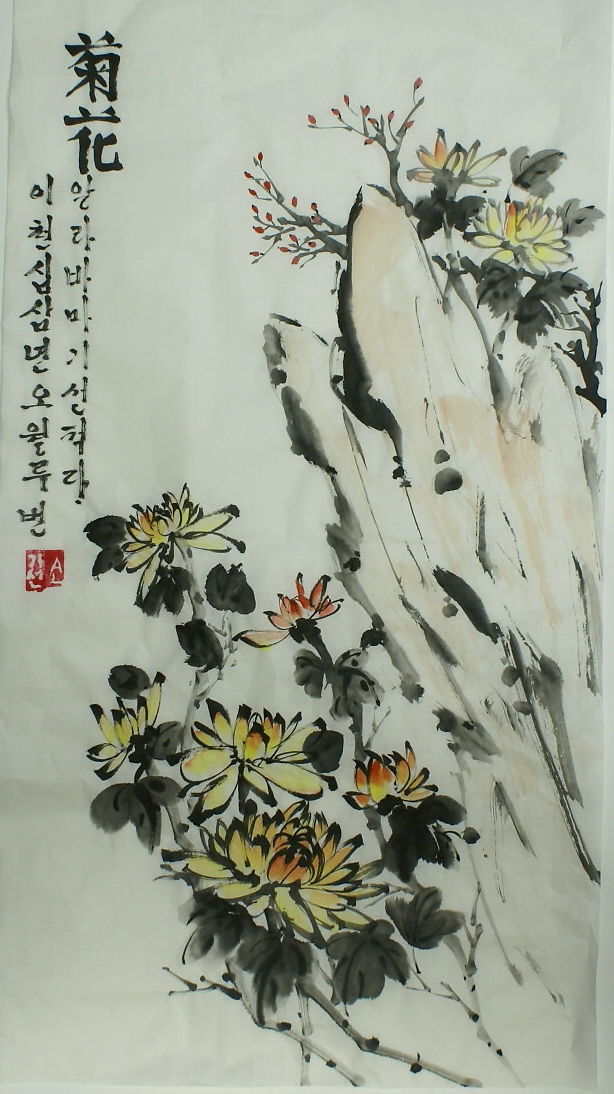 菊花
알라바마기선
이천십삼년오월두번